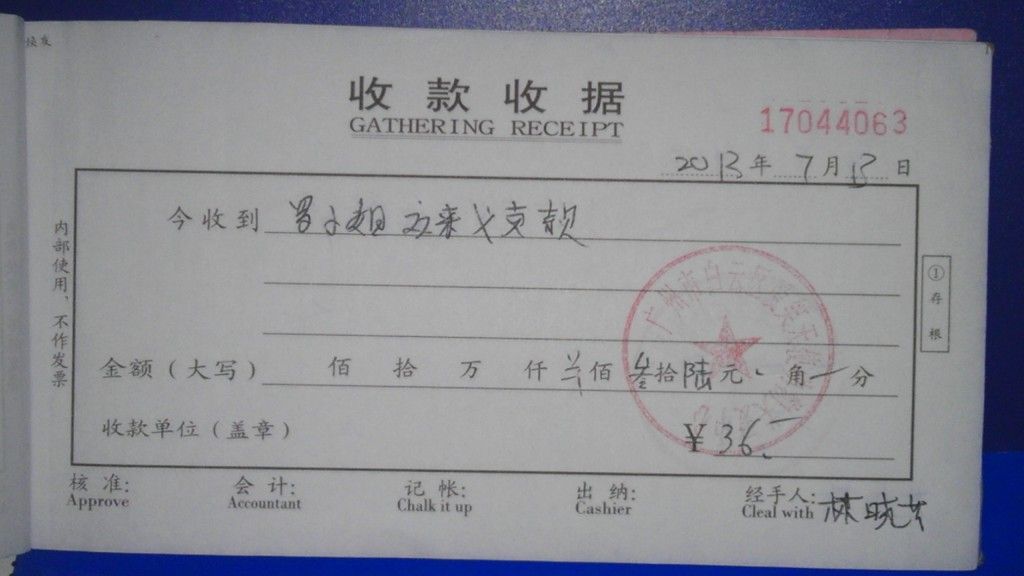 收款收据
GATHERING RECEIPT
17044063
2013年7月13日
今收到 罗小姐 款
金额（大写） 佰 拾 万 仟 佰 叁拾陆元 角 分
收款单位（盖章） ￥36.
核准: 会计: 记帐: 出纳: 经手人: 林晓
Approve Accountant Chalk it up Cashier Cleal with
内部使用、不作发票
①存根
广州市白云区